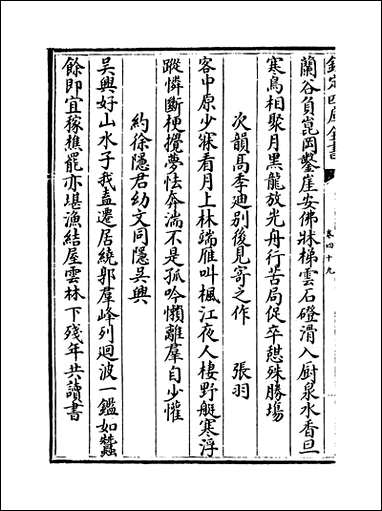 欽定四庫全書
卷四十九
蘭谷負崑岡鑿崖安佛牀梯雲石磴滑入厨泉水香旦
寒鳥相聚月黒龍放光舟行苦局促卒憇殊勝場
次韻髙季迪別後見寄之作　張羽
客中原少寐看月上林端雁叫楓江夜人棲野艇寒浮
蹤憐斷梗攪夢怯奔湍不是孤吟懶離羣自少懽
約徐隱君幼文同隱吳興
吳興好山水子我盍遷居繞郭羣峰列迴波一鑑如蠶
餘即宜稼樵罷亦堪漁結屋雲林下殘年共讀書